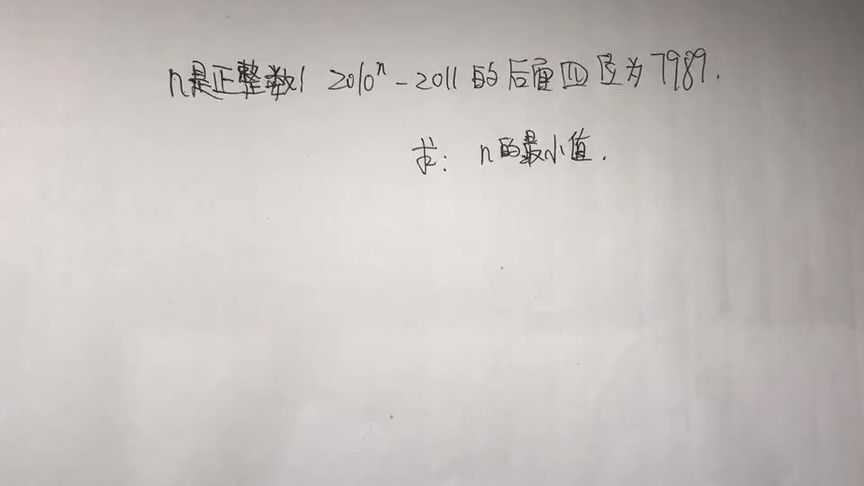 n是正整数 2010ⁿ-2011的后面四位为7989.
求: n的最小值.